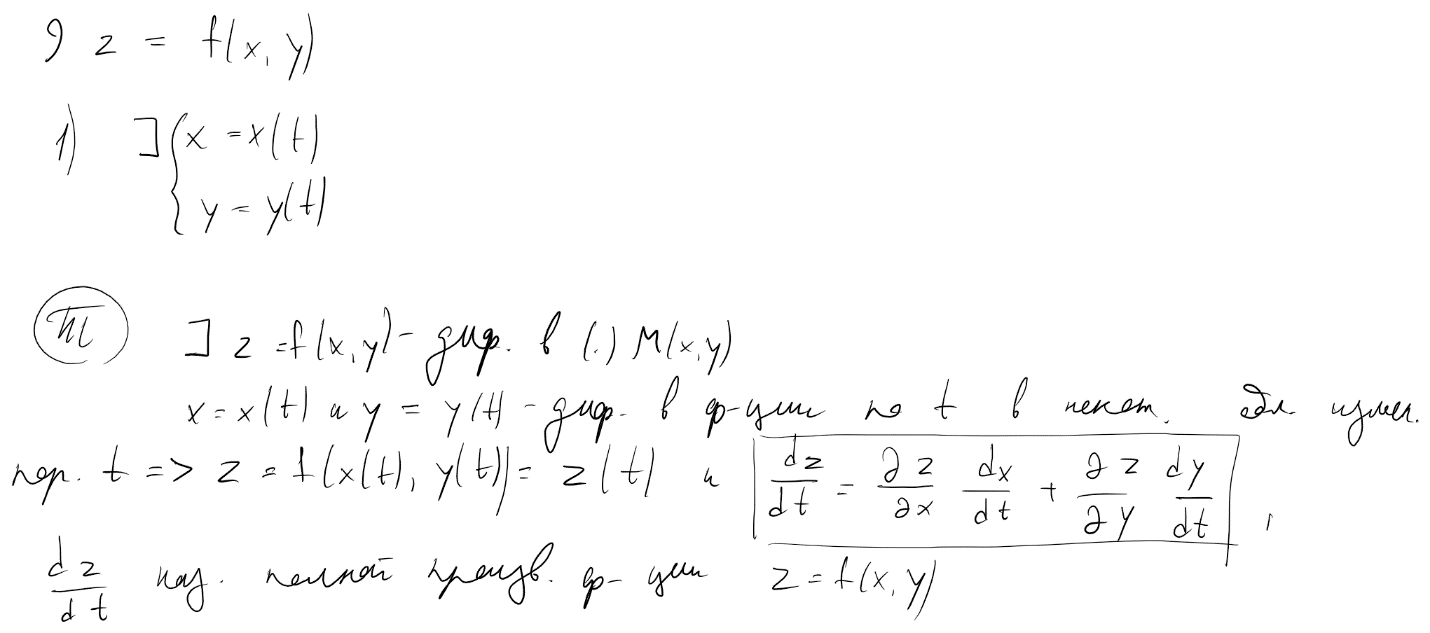 Э z = f(x, y)
1) ] { x = x(t)
{ y = y(t)
Th ] z = f(x, y) - диф. в (.) M(x, y)
x = x(t) и y = y(t) - диф. в ф-ции по t в некот. обл. измен.
пер. t => z = f(x(t), y(t)) = z(t) и dz/dt = ∂z/∂x dx/dt + ∂z/∂y dy/dt ,
dz/dt наз. полной произв. ф-ции z = f(x, y)